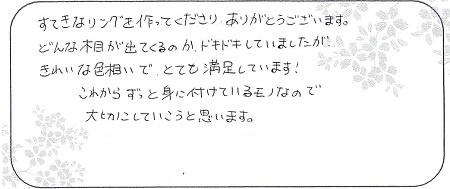 すてきなリングを作ってくださり、ありがとうございます。
どんな木目が出てくるのか、ドキドキしていましたが、
きれいな色相いで、とても満足しています!
これからずっと身に付けているモノなので
大切にしていこうと思います。